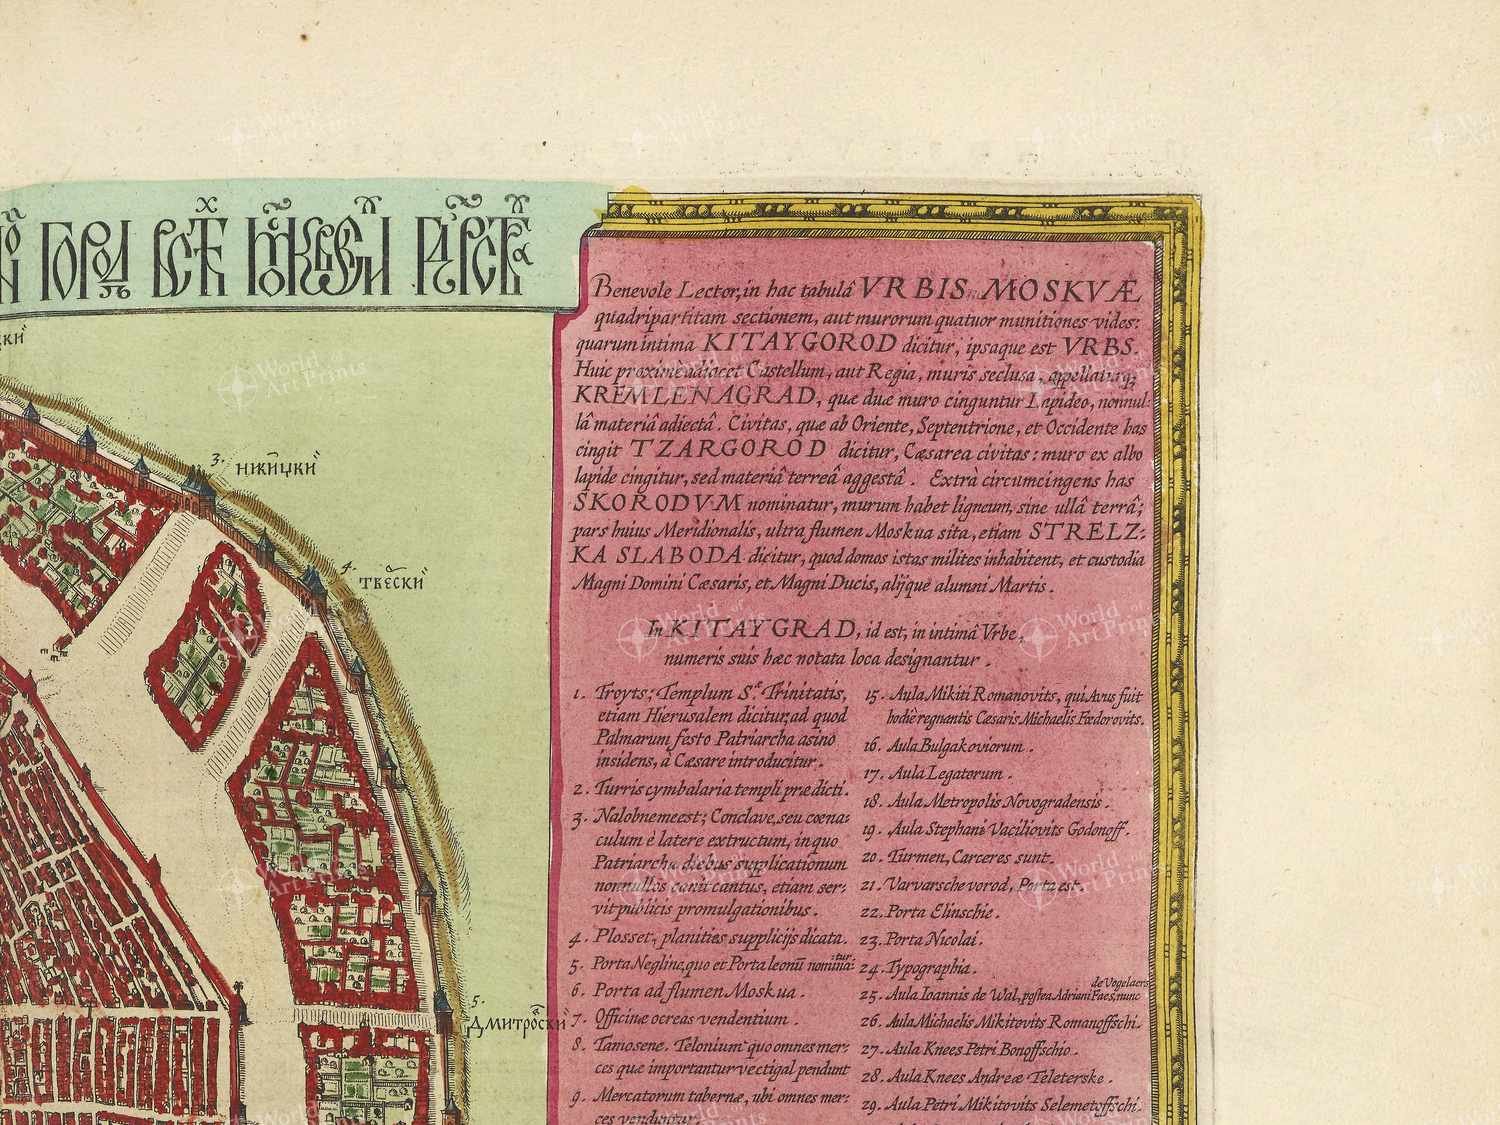 Benevole Lector, in hac tabulâ VRBIS MOSKVÆ
quadripartitam sectionem, aut murorum quatuor munitiones vides:
quarum intima KITAYGOROD dicitur, ipsaque est VRBS.
Huic proximè adiacet Castellum, aut Regia, muris seclusa, appellaturq;
KREMLENAGRAD, quæ duæ muro cinguntur Lapideo, nonnul-
lâ materiâ adiectâ. Civitas, quæ ab Oriente, Septentrione, et Occidente has
cingit TZARGOROD dicitur, Cæsarea civitas: muro ex albo
lapide cingitur, sed materiâ terreâ aggestâ. Extrà circumcingens has
SKORODVM nominatur, murum habet ligneum, sine ullâ terrâ;
pars huius Meridionalis, ultra flumen Moskua sita, etiam STRELZ-
KA SLABODA dicitur, quod domos istas milites inhabitent, et custodia
Magni Domini Cæsaris, et Magni Ducis, alijque alumni Martis.
In KITAYGRAD, id est, in intimâ Vrbe,
numeris suis hæc notata loca designantur.
1. Troyts; Templum S.æ Trinitatis,
etiam Hierusalem dicitur, ad quod
Palmarum festo Patriarcha asino
insidens, à Cæsare introducitur.
2. Turris cymbalaria templi prædicti.
3. Nalobnemeest; Conclave, seu cœna-
culum è latere extructum, in quo
Patriarcha diebus supplicationum
nonnullos canit cantus, etiam ser-
vit publicis promulgationibus.
4. Plosset, planities supplicijs dicata.
5. Porta Neglinæ, quo et Porta leonũ nominatur.
6. Porta ad flumen Moskua.
7. Officinæ ocreas vendentium.
8. Tamosene. Telonium quo omnes mer-
ces quæ importantur vectigal pendunt
9. Mercatorum tabernæ, ubi omnes mer-
ces venduntur.
15. Aula Mikiti Romanovits, qui Avus fuit
hodiè regnantis Cæsaris Michaelis Fœdorovits.
16. Aula Bulgakoviorum.
17. Aula Legatorum.
18. Aula Metropolis Novogradensis.
19. Aula Stephani Vaciliovits Godonoff.
20. Turmen, Carceres sunt.
21. Varvarsche vorod, Porta est.
22. Porta Elinschie.
23. Porta Nicolai.
24. Typographia.
25. Aula Ioannis de Wal, postea Adriani Faes, nunc de Vogelaers
26. Aula Michaelis Mikitovits Romanoffschi.
27. Aula Knees Petri Bonoffschio.
28. Aula Knees Andreæ Teleterske.
29. Aula Petri Mikitovits Selemetoffschi.
3. никицки
4. твески
5. дмитроски
World of Art Prints